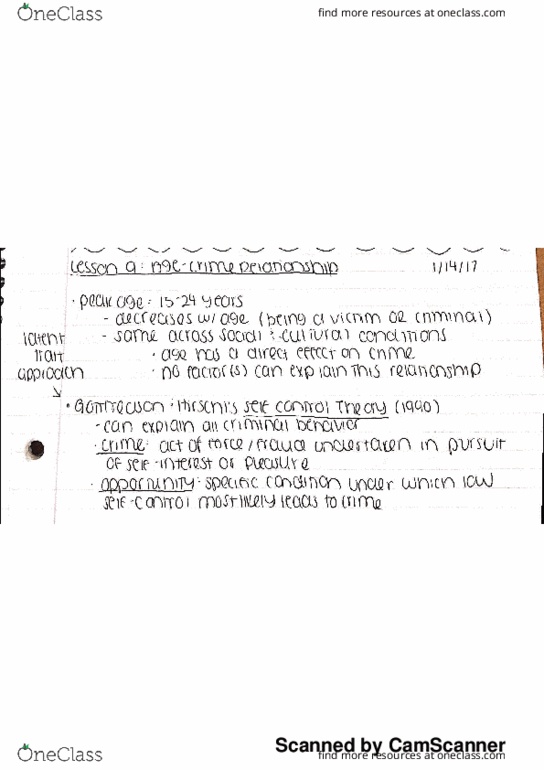 OneClass
find more resources at oneclass.com
Lesson 9: Age-Crime Relationship 1/14/17
· peak age: 15-24 years
- decreases w/ age (being a victim or criminal)
- same across social & cultural conditions
· age has a direct effect on crime
· no factor(s) can explain this relationship
latent
trait
approach
· Gottfredson & Hirschi's Self Control Theory (1990)
- can explain all criminal behavior
· crime: act of force/fraud undertaken in pursuit
of self-interest or pleasure
· opportunity: specific condition under which low
self-control most likely leads to crime
Scanned by CamScanner
OneClass
find more resources at oneclass.com